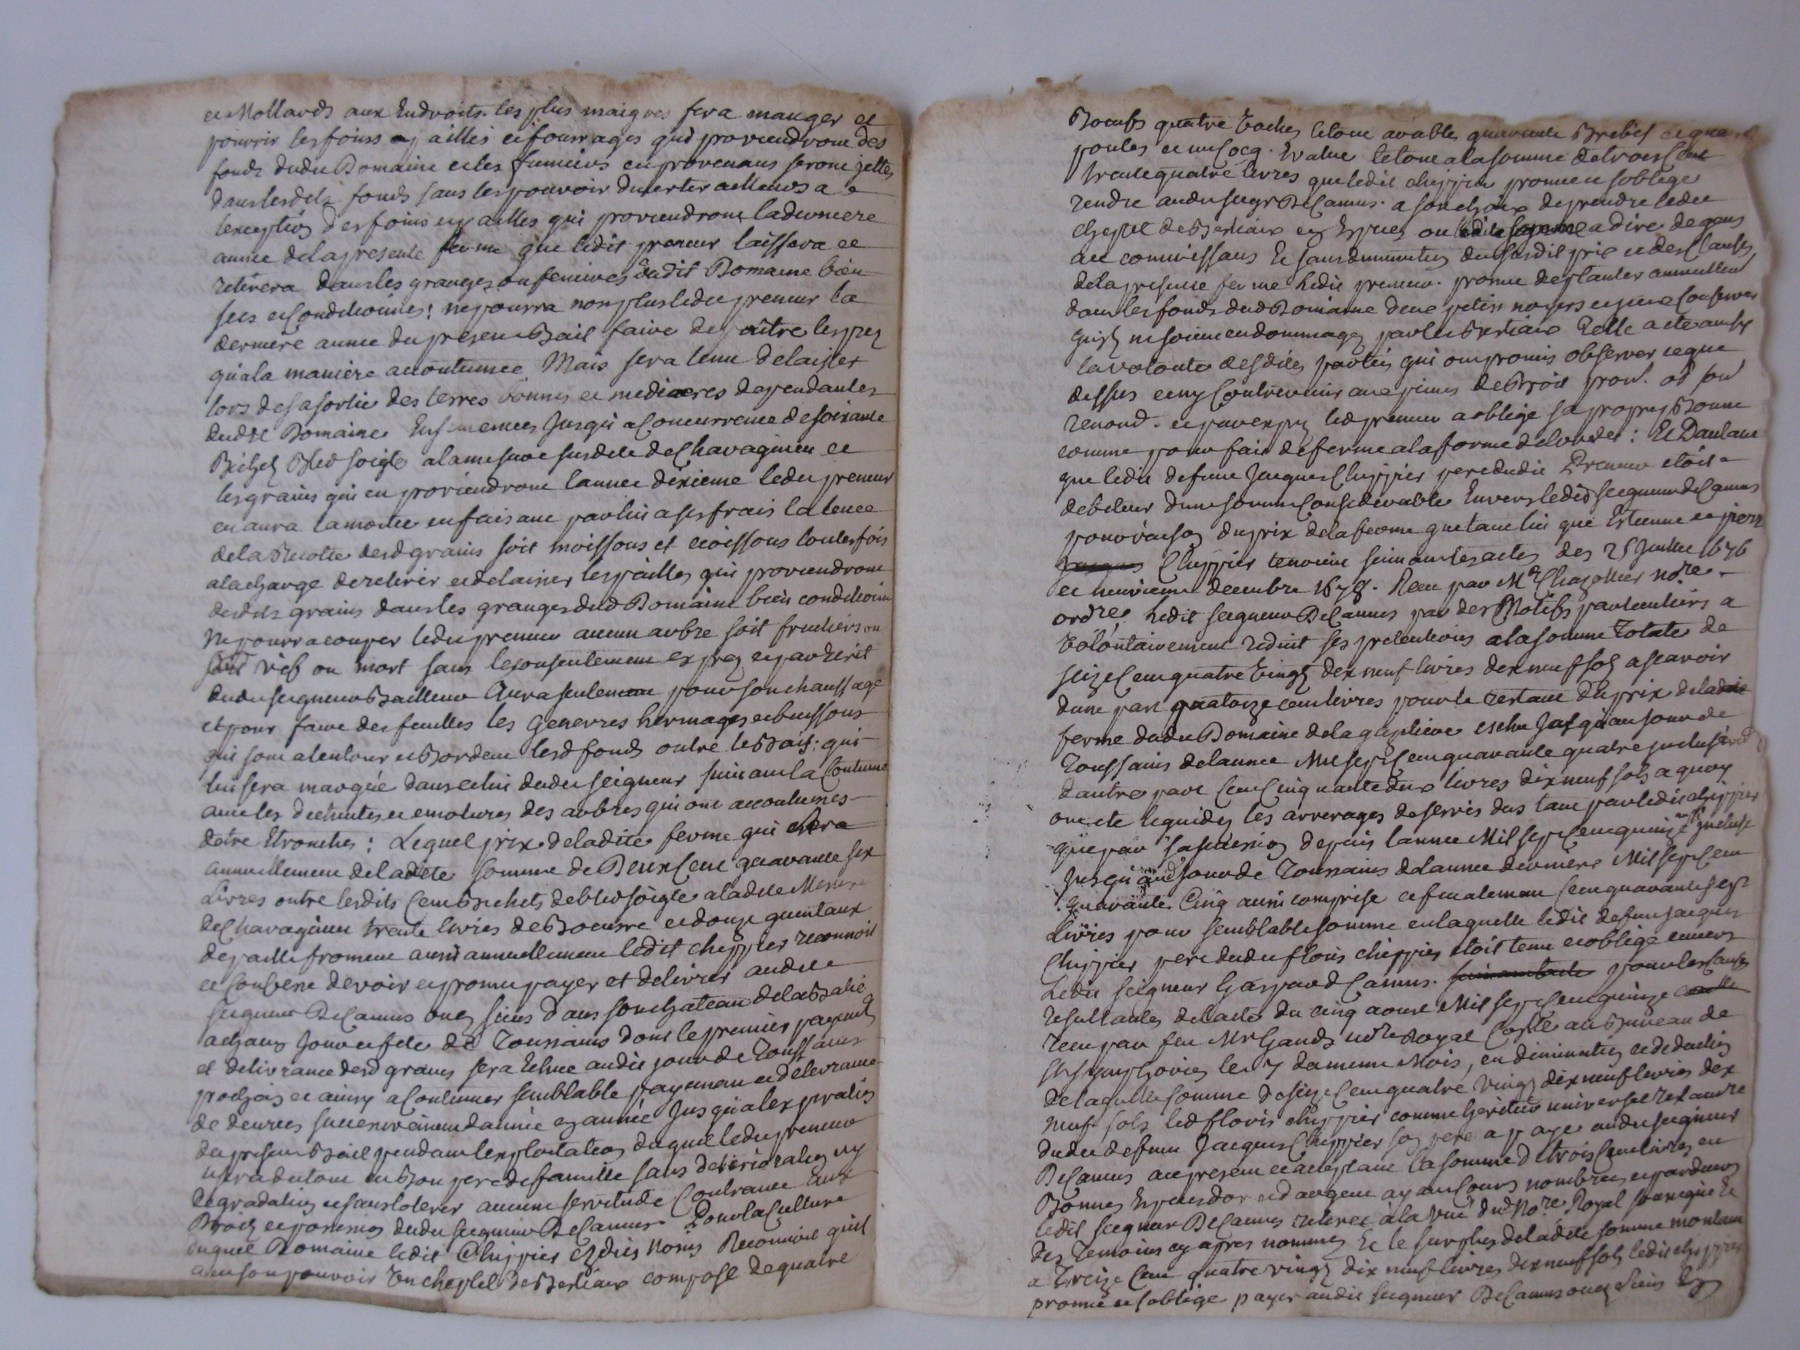 et Mollards aux Endroits les plus maigres fera manger et
pourrir les foins pailles et fourrages qui proviendront des
fonds dudit Domaine et les fumiers en provenans seront jettes
dans lesdits fonds sans les pouvoir divertir ailleurs a
lexception des foins et pailles qui proviendront la derniere
année de la presente ferme que ledit preneur laissera et
retirera dans les granges ou fenieres dudit Domaine bien
secs et Conditionnés; ne pourra non plus ledit preneur la
derniere année du present Bail faire de paitre les prez
qu'a la maniere accoutumée Mais sera tenu de laisser
lors de sa sortie des terres bonnes et mediocres dependantes
dudit Domaine Ensemencées Jusqu'a Concurrence de soixante
Bichets Bled soigle a la mesure susdite de Chavagnieu et
les grains qui en proviendront lannée dixieme ledit preneur
en aura la moitié en faisant par lui a ses frais la levée
de la Recolte desd grains soit moissons et ecoissons toutesfois
a la charge de retirer et de laisser les pailles qui proviendront
desdits grains dans les granges dud Domaine bien conditionnées
Ne pourra couper ledit preneur aucun arbre soit fruitiers ou
soit vifs ou mort sans le consentement exprez et par Ecrit
dudit seigneur Bailleur Aura seulement pour son chauffage
et pour faire des feuilles les genevres hermages et buissons
qui sont alentour et Bordent lesd fonds outre le Bois qui
lui sera marqué dans celui dudit seigneur suivant la Coutume
avec les et emolures des arbres qui ont accoutumés
detre Etronchés: Lequel prix de ladite ferme qui sera
annuellement de ladite somme de Deux Cent quarante six
Livres outre lesdits Cent Bichets de bled soigle a ladite Mesure
de Chavagnieu trente livres de Boeurre et douze quintaux
de paille froment aussi annuellement ledit chippier reconnoit
et Confesse devoir et promet payer et delivrer audit
seigneur De Camus ou es siens dans son chateau de la
a chaque Jour et fete de Toussaints dont le premier payement
et delivrance desd grains sera Echue audit jour de Toussaints
prochain et ainsy a Continuer semblable payement et delivrance
de denrées successivement d'année en année Jusqu'a lexpiration
du present Bail pendant lexploitation duquel ledit preneur
usera du tout en Bon pere de famille sans deterioration ny
degradation et sans tolerer aucune servitude Contraire aux
Droits et possession dudit seigneur De Camus. Pour la Culture
duquel Domaine ledit Chippier esdits noms Reconnoit qu'il
a en son pouvoir Un cheptel de Bestiaux composé de quatre
Boeufs quatre Vaches le tout arable quarante Brebis et quatre
poules et un Cocq. Evalué le tout a la somme de trois Cent
trente quatre livres que ledit chippier promet et soblige
rendre audit seigr De Camus. a son choix de prendre ledit
cheptel de Bestiaux en Especes ou ladite somme a dire de gens
a ce connoissans Et sans diminution du susdit prix et des Clauses
de la presente ferme Ledit preneur. promet de planter annuellement
dans les fonds dud Domaine deux petits noyers et iceux Conserver
qu'ils ne soient endommagez par les Bestiaux Telle a été aussy
la volonte desdites parties qui ont promis observer ce que
dessus et ny Contrevenir aux peines de Droit
renond. et par exprez led preneur a obligé sa propre personne
comme pour fait de ferme a la forme de lordce: Et Dautant
que ledit defunt Jacques Chippier pere dudit Preneur etoit
debiteur dune somme Considerable Envers ledit seigneur de Camus
pour raison du prix de la ferme que tant lui que Estienne et pierre
Chippier tenoient suivant les actes des 25 Juillet 1676
et neuvieme decembre 1678. Receu par Mr Chazottier nore
ordre. Ledit seigneur De Camus par des Motifs particuliers a
volontairement reduit ses pretentions a la somme totale de
seize Cent quatre Vingts dix neuf livres dix neuf sols a scavoir
dune part quatorze cent livres pour le restant du prix de ladite
ferme dudit Domaine de la echu Jusqu'au jour de
Toussaints de lannée Mil sept Cent quarante quatre
dautre part Cent Cinquante deux livres dix neuf sols a quoy
ont ete liquidez les arrerages de servis dus tant par ledit chippier
que par depuis lannée Mil sept Cent quinze incluse
Jusqu'au jour de Toussaints de lannée derniere Mil sept Cent
quarante Cinq aussi comprise et finalement Cent quarante sept
Livres pour semblable somme en laquelle ledit defunt Jacques
Chippier pere dudit floris chippier etoit tenu et obligé envers
Ledit seigneur Gaspard de Camus. pour les Causes
resultantes de lacte du cinq aoust Mil sept Cent quinze
receu par feu Mre Gands nore Royal Collé au Bureau de
St Simphorien le 7 du meme Mois, en diminution et deduction
de laquelle somme de seize Cent quatre vingt dix neuf livres dix
neuf sols led floris chippier comme heritier universel
dudit defunt Jacques Chippier son pere a payé audit seigneur
De Camus ici present et acceptant la somme de trois Cent livres en
Bonnes Especes dor et dargent ayant Cours nombrées et par devers
ledit seigneur De Camus retirée a la vue dud Nore Royal soussigné Et
des Temoins cy apres nommez Et le surplus de ladite somme montant
a Treize Cent quatre vingts dix neuf livres dix neuf sols ledit chippier
promet et soblige payer audit seigneur De Camus ou es siens